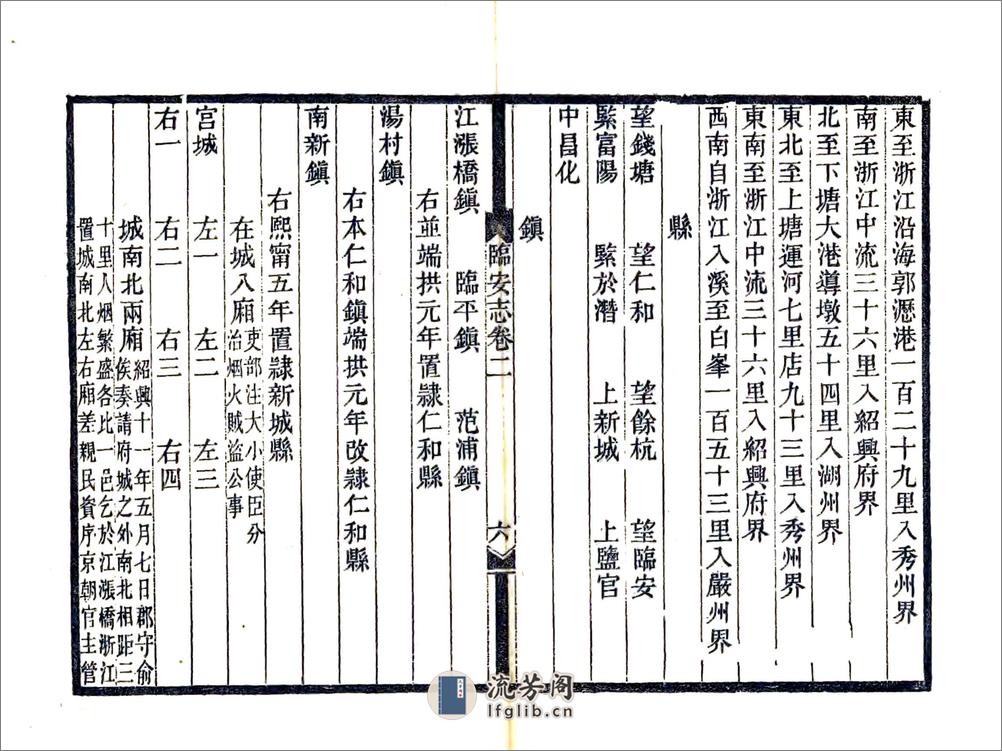 東至浙江沿海郭瀝港一百二十九里入秀州界
南至浙江中流三十六里入紹興府界
北至下塘大港導墩五十四里入湖州界
東北至上塘運河七里店九十三里入秀州界
東南至浙江中流三十六里入紹興府界
西南自浙江入溪至白峯一百五十三里入嚴州界
縣
望錢塘 望仁和 望餘杭 望臨安
緊富陽 緊於潛 上新城 上鹽官
中昌化
鎮
臨安志卷二 六
江漲橋鎮 臨平鎮 范浦鎮
右並端拱元年置隸仁和縣
湯村鎮
右本仁和鎮端拱元年改隸仁和縣
南新鎮
右熙甯五年置隸新城縣
在城八廂吏部注大小使臣分
治烟火賊盜公事
宮城 左一 左二 左三
右一 右二 右三 右四
城南北兩廂紹興十一年五月七日郡守俞
俟奏請府城之外南北相距三
十里人烟繁盛各比一邑乞於江漲橋浙江
置城南北左右廂差親民資序京朝官主管
流芳阁
lfglib.cn